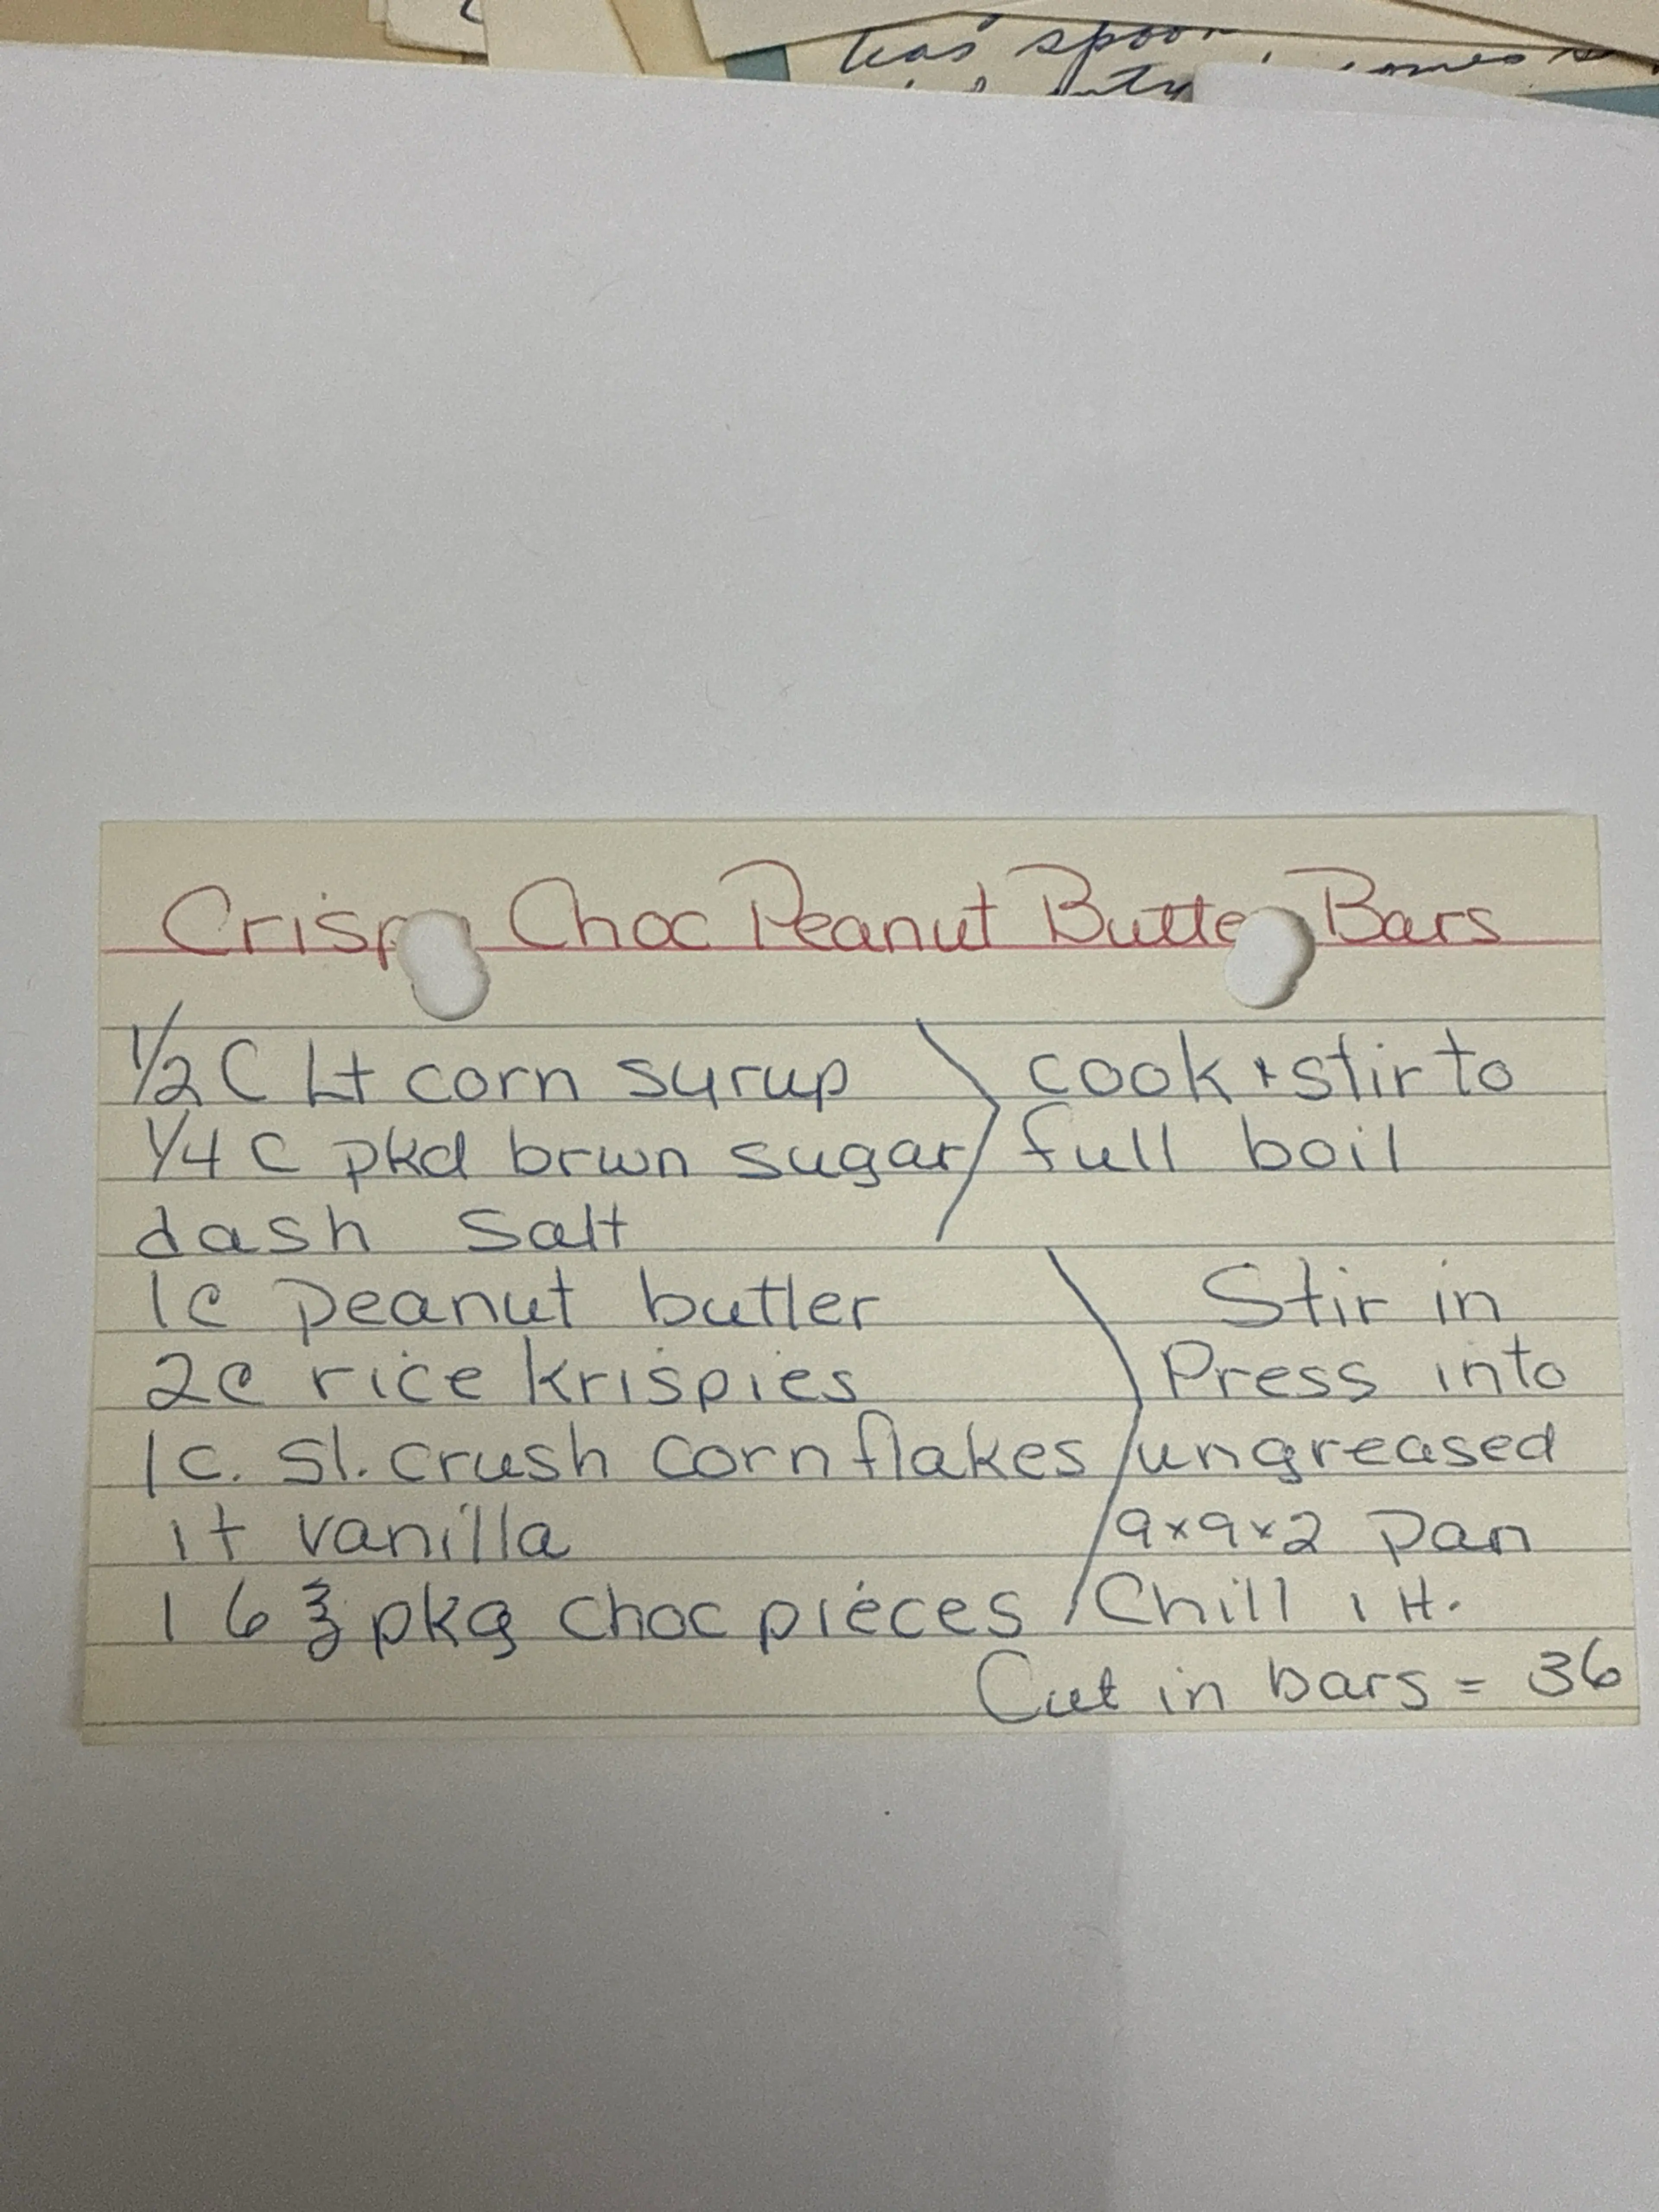 has spoon
Crispy Choc Peanut Butter Bars
1/2 C Lt corn syrup
1/4 C pkd brwn sugar
dash Salt
cook + stir to
full boil
1c peanut butter
2c rice krispies
1c. sl. crush cornflakes
1t vanilla
1 6 ℥ pkg choc pieces
Stir in
Press into
ungreased
9x9x2 pan
Chill 1 H.
Cut in bars = 36